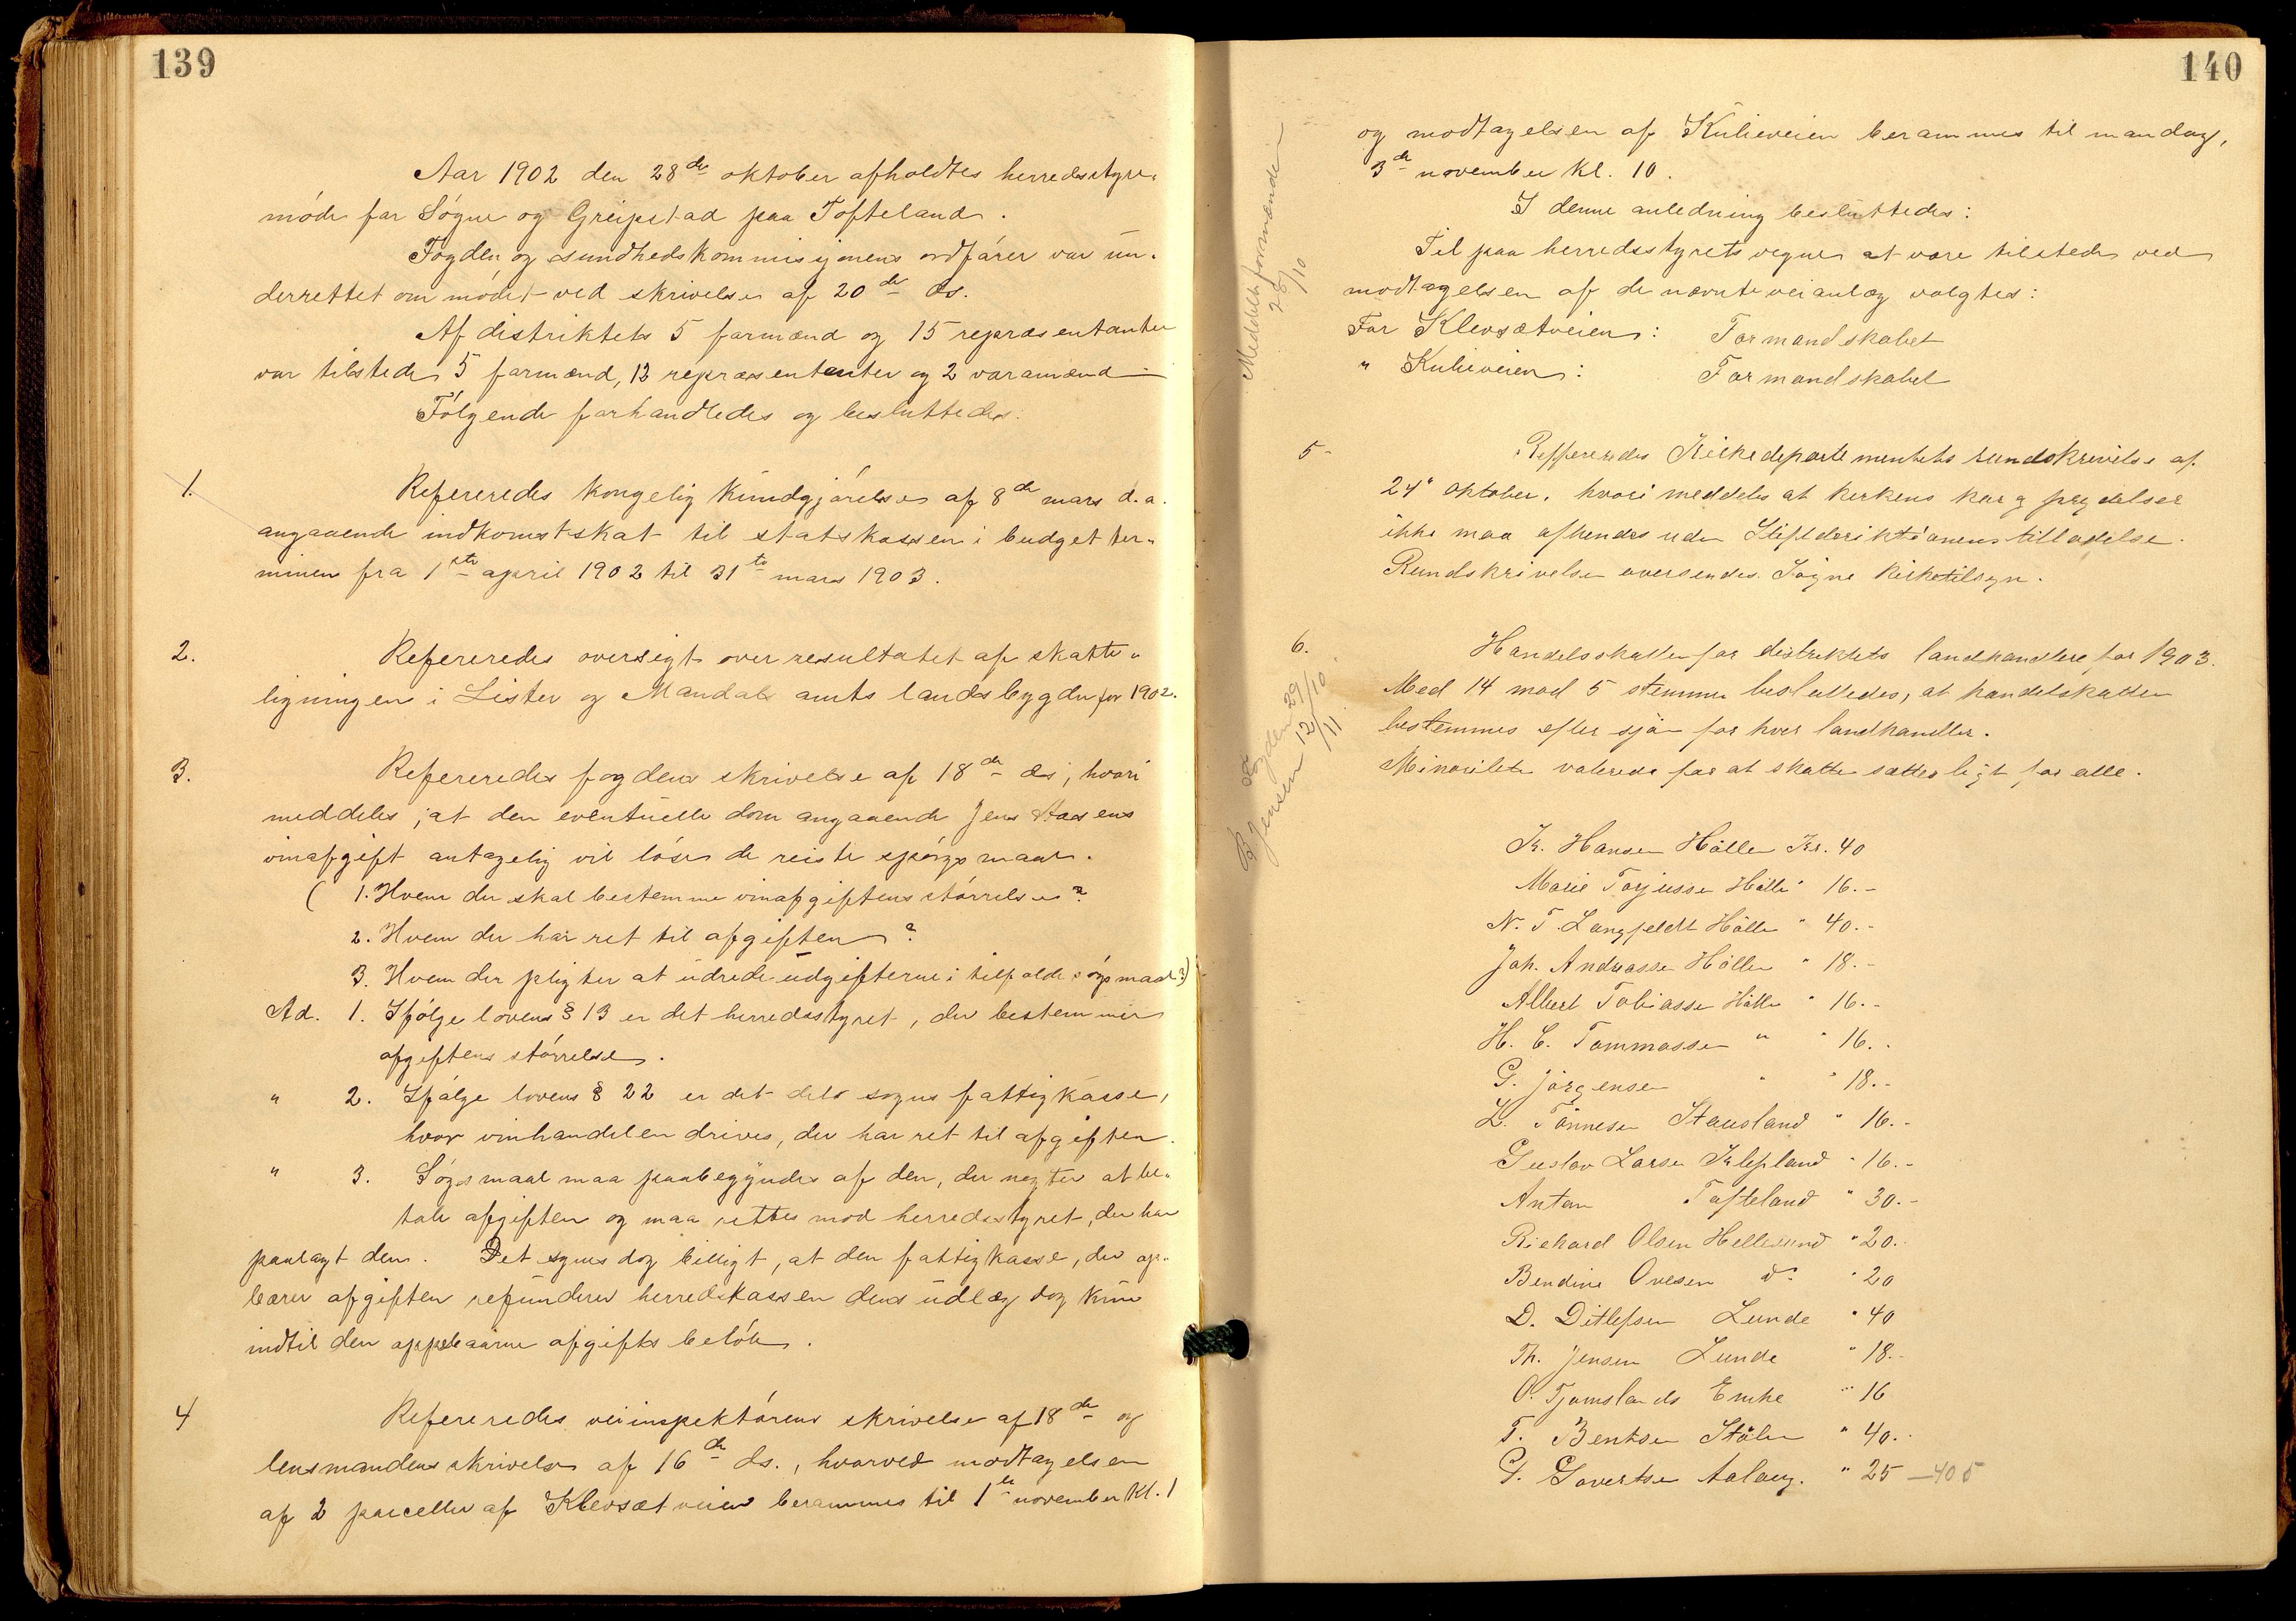 139
Aar 1902 den 28de oktober afholdtes herredsstyre-
møde for Søgne og Greipstad paa Tofteland.
Fogden og sundhedskommisjonens ordfører var un-
derrettet om mødet ved skrivelse af 20de ds.
Af distriktets 5 formænd og 15 repræsentanter
var tilstede 5 formænd, 12 repræsentanter og 2 varamænd
Følgende forhandledes og besluttedes:
1. Refereredes kongelig kundgjørelse af 8de mars d.a.
angaaende indkomstskat til statskassen i budgetter-
minen fra 1ste april 1902 til 31te mars 1903.
2. Refereredes oversigt over resultatet af skatte-
ligningen i Lister og Mandals amts landsbygder for 1902.
3. Refereredes fogdens skrivelse af 18de ds, hvori
meddeles, at den eventuelle dom angaaende Jens Aasens
vinafgift antagelig vil løse de reiste spørgsmaal.
( 1. Hvem der skal bestemme vinafgiftens størrelse?
2. Hvem der har ret til afgiften?
3. Hvem der pligter at udrede udgifterne i tilfælde søgsmaal?)
Ad. 1. Ifølge lovens § 13 er det herredsstyret, der bestemmer
afgiftens størrelse.
" 2. Ifølge lovens § 22 er det dets sogns fattigkasse,
hvor vinhandelen drives, der har ret til afgiften.
" 3. Søgsmaal maa paabegyndes af den, der negter at be-
tale afgiften og maa rettes mod herredsstyret, der har
paalagt den. Det synes dog billigt, at den fattigkasse, der op-
bærer afgiften refunderer herredskassen dens udlæg dog kun
indtil den oppebaarne afgifts beløb.
4 Refereredes veiinspektørens skrivelse af 18de og
lensmandens skrivelse af 16de ds., hvorved modtagelsen
af 2 parceller af Klevsætveien berammes til 1ste november kl. 1
140
og modtagelsen af Kulieveien berammes til mandag,
3de november kl. 10.
I denne anledning besluttedes:
Til paa herredsstyrets vegne at være tilstede ved
modtagelsen af de nævnte veianlæg valgtes:
For Klevsætveien: Formandskabet
" Kulieveien: Formandskabet
Meddelt formændene
28/10
5- Reffereredes Kirkedepartementets rundskrivelse af
24' oktober, hvori meddeles at kirkens kar og prydelser
ikke maa afhendes uden Stiftsdirektionens tilladelse.
Rundskrivelsen oversendes Søgne kirketilsyn.
6. Handelsskatten for distriktets landhandlere for 1903.
Med 14 mod 5 stemmer besluttedes, at handelskatten
bestemmes efter skjøn for hver landhandler.
Minoriteten voterede for at skatten sættes ligt for alle.
Fogden 29/10
B Jensen 12/11
Kr. Hansen Hölle Kr. 40
Marie Torjussen Hölle " 16.-
N. T. Langfeldt Hölle " 40.-
Joh. Andreassen Hölle " 18.-
Albert Tobiassen Hölle " 16.-
H. C. Tommassen " " 16.-
G. Jörgensen " " 18.-
L. Tönnesen Stausland " 16.-
Gustav Larsen Klepland " 16.-
Anton Tofteland " 30.-
Richard Olsen Hellesund " 20.-
Bendine Ovesen do " 20
D. Ditlefsen Lunde " 40
Th. Jensen Lunde " 18.-
O. Tjomslands Enke " 16
T. Bentsen Stölen " 40.-
G. Govertsen Aalaug. " 25 – 405